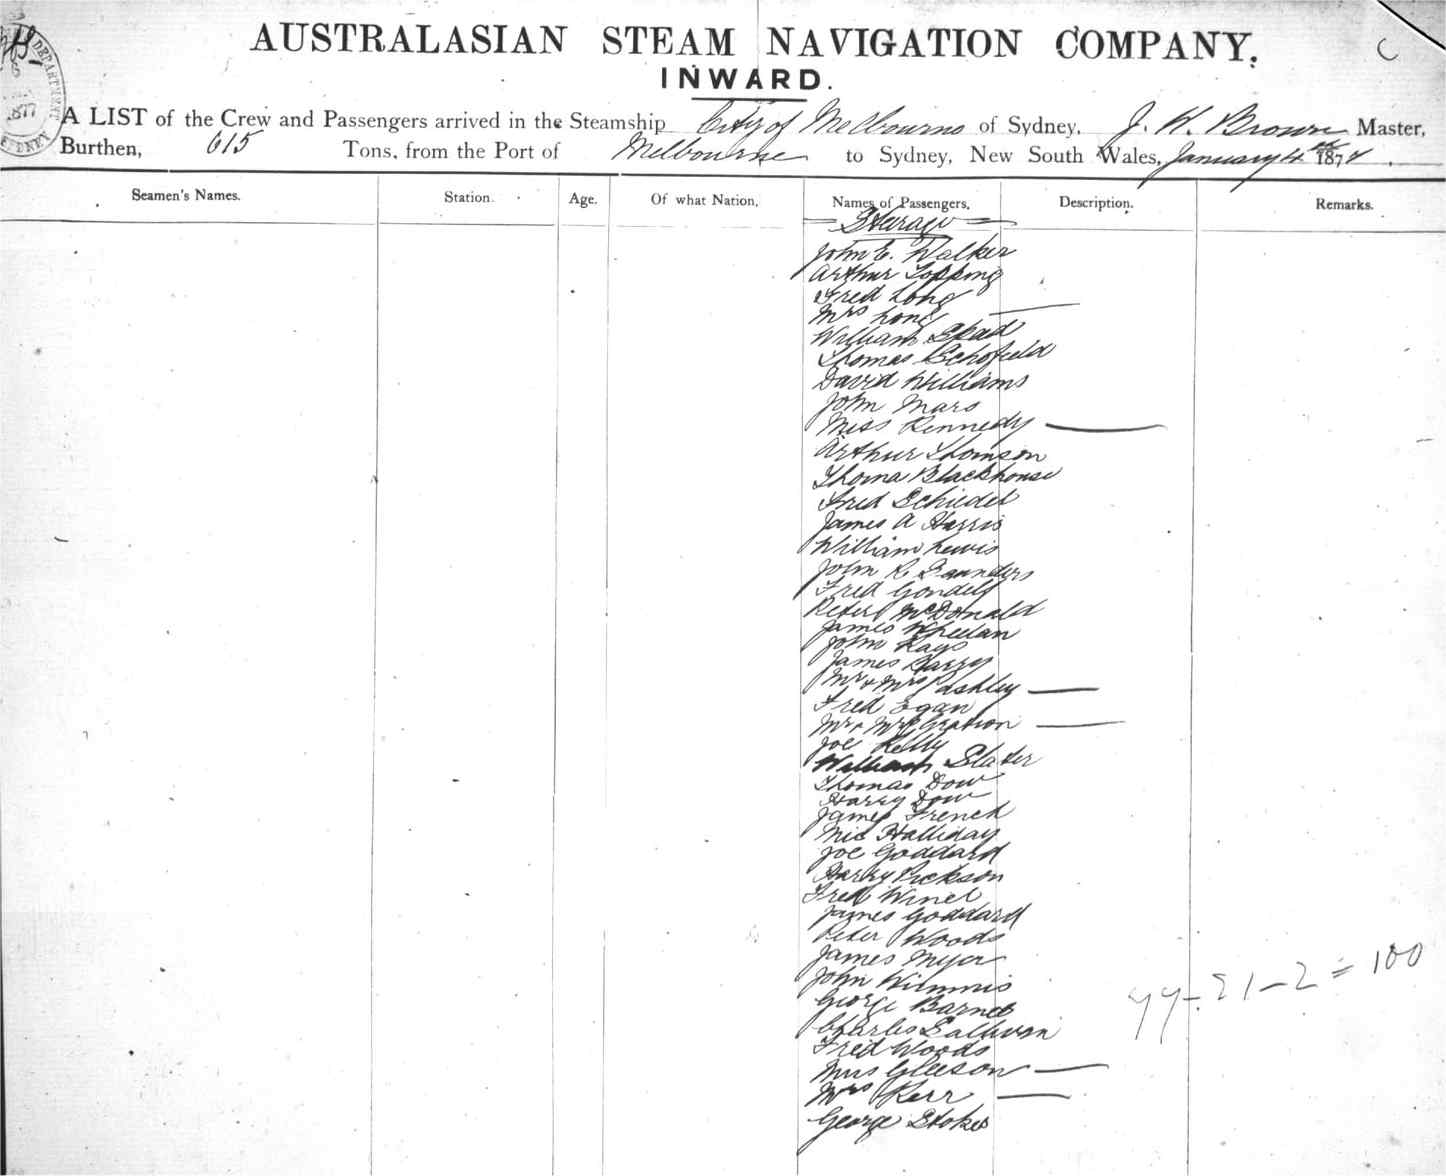 C
DEPARTMENT
1877
AUSTRALASIAN STEAM NAVIGATION COMPANY.
INWARD.
A LIST of the Crew and Passengers arrived in the Steamship City of Melbourne of Sydney, J. K. Brown Master,
Burthen, 615 Tons, from the Port of Melbourne to Sydney, New South Wales, January 4th 1877.
Seamen's Names. Station. Age. Of what Nation, Names of Passengers, Description. Remarks.
Steerage
John E. Walker
Arthur Topping
Fred Long
Mrs Long
William Spad
Thomas Schofield
David Williams
John Mars
Miss Kennedy
Arthur Thomson
Thoma Blackhouse
Fred Schiedel
James A Harris
William Lewis
John R Saunders
Fred Gondelf
Peter McDonald
James Wheelan
John Kays
James Barry
Mr & Mrs Pashley
Fred Egan
Mr & Mrs Gration
Joe Kelly
William Slater
Thomas Dow
Harry Dow
James French
Mic Halliday
Joe Goddard
Harry Dickson
Fred Winel
James Goddard
Peter Woods
James Myer
John Wimmis
George Barnes
Charles Sullivan
Fred Woods
Miss Gleeson
Mrs Kerr
George Stokes
77-21-2=100